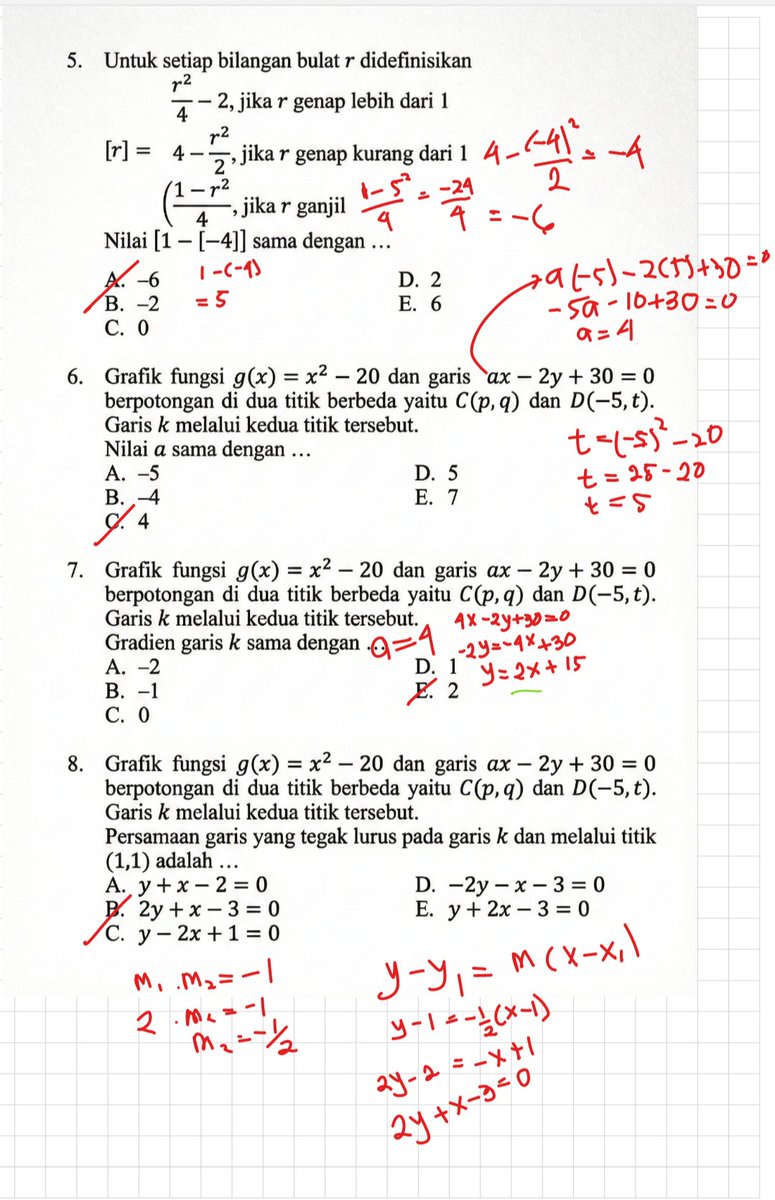 5. Untuk setiap bilangan bulat r didefinisikan
r²/4 − 2, jika r genap lebih dari 1
[r] = 4 − r²/2, jika r genap kurang dari 1 4-(-4)²/2 = -4
(1 − r²/4, jika r ganjil 1-5²/4 = -24/4 = -6
Nilai [1 − [−4]] sama dengan …
A. −6 1-(-4) D. 2
B. −2 = 5 E. 6
C. 0
a(-5)-2(5)+30=0
-5a-10+30=0
a=4
6. Grafik fungsi g(x) = x² − 20 dan garis ax − 2y + 30 = 0
berpotongan di dua titik berbeda yaitu C(p, q) dan D(−5, t).
Garis k melalui kedua titik tersebut.
Nilai a sama dengan …
A. −5 D. 5
B. −4 E. 7
C. 4
t=(-5)²-20
t = 25-20
t = 5
7. Grafik fungsi g(x) = x² − 20 dan garis ax − 2y + 30 = 0
berpotongan di dua titik berbeda yaitu C(p, q) dan D(−5, t).
Garis k melalui kedua titik tersebut. 4x-2y+30=0
Gradien garis k sama dengan … a=4 -2y=-4x+30
A. −2 D. 1 y=2x+15
B. −1 E. 2
C. 0
8. Grafik fungsi g(x) = x² − 20 dan garis ax − 2y + 30 = 0
berpotongan di dua titik berbeda yaitu C(p, q) dan D(−5, t).
Garis k melalui kedua titik tersebut.
Persamaan garis yang tegak lurus pada garis k dan melalui titik
(1,1) adalah …
A. y + x − 2 = 0 D. −2y − x − 3 = 0
B. 2y + x − 3 = 0 E. y + 2x − 3 = 0
C. y − 2x + 1 = 0
m₁ .m₂=-1
2 .m₂=-1
m₂=-1/2
y-y₁= m(x-x₁)
y-1=-1/2(x-1)
2y-2 = -x+1
2y+x-3=0